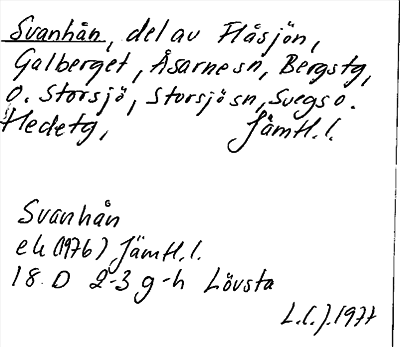 Svanhån, del av Flåsjön,
Galberget, Åsarne sn, Bergs tg,
o. Storsjö, Storsjö sn, Svegs o.
Hede tg, Jämtl. l.
Svanhån
ek (1976) Jämtl. l.
18 D 2-3 g-h Lövsta
L.C.J. 1977